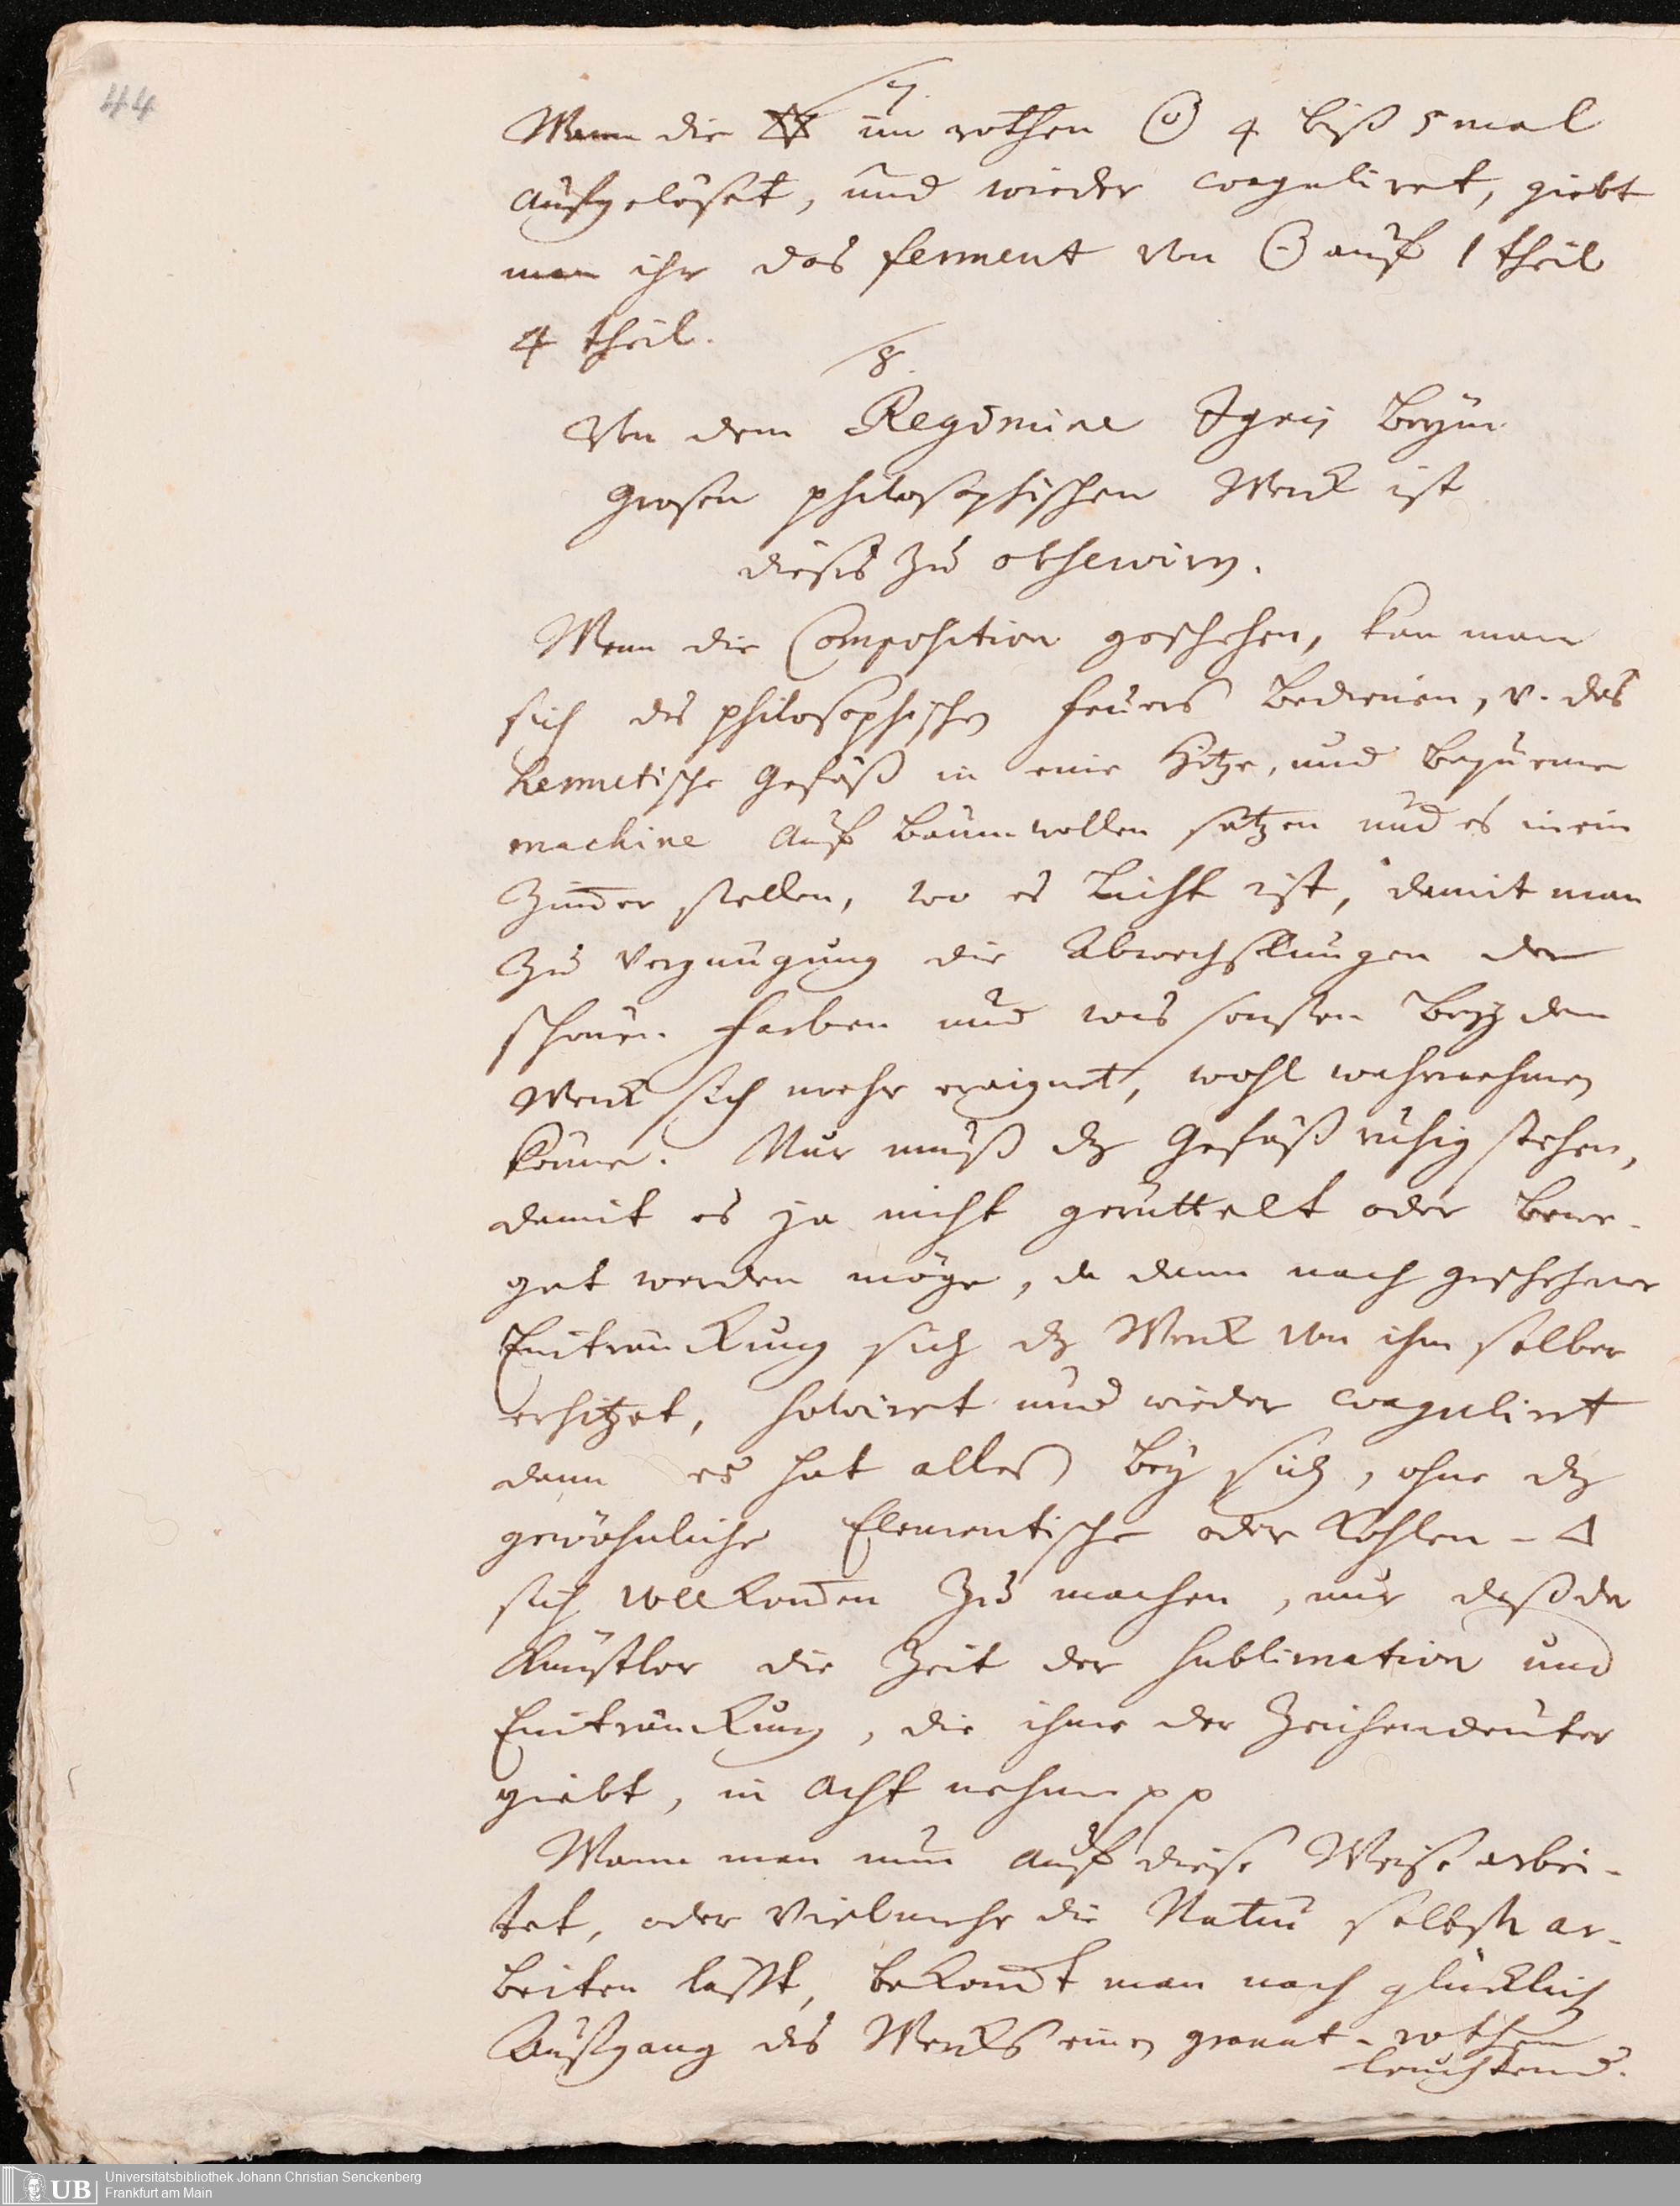 44
7.
Wenn die im rothen ☉ 4 biß 5 mal
aufgelöset, und wieder coaguliret, giebt
man ihr das ferment von ☉ auf 1 theil
4 theil.
8.
Von dem Regimine Ignis beym
Grosen philosophischen Werck ist
dieses zu observirn.
Wenn die Composition geschehen, kan man
sich des philosophischen feuers bedienen, v. das
hermetische Gefäß in eine Hitze, und
machine auf baumwollen setzen und es in ein
Zim̄er stellen, wo es Licht ist, damit man
zu Vergnügung die Abwechslungen der
schönen farben und was sonsten bey dem
Werck sich mehr eraignet, wohl wahrnehmen
könne. Nur muß dz Gefäß ruhig stehen,
damit es ja nicht gerüttelt oder bewe-
get werden möge, da dann nach geschehener
Einträuckung sich dz Werck von ihm selber
erhitzet, solviret und wieder coaguliret
dann es hat alles bey sich, ohne dz
gewöhnliche Elementische oder Kohlen - △
sich vollkom̄en zu machen, nur daß der
Künstler die Zeit der Sublimation und
Einträuckung, die ihme der Zeichendeuter
giebt, in acht nehme pp
Wann man nun auf diese Weise arbei-
tet, oder Vielmehr die Natur selbst ar-
beiten lässt, bekom̄t man nach glücklich
Außgang des Wercks einen granat-rothen
leuchtend.
UB
Universitätsbibliothek Johann Christian Senckenberg
Frankfurt am Main